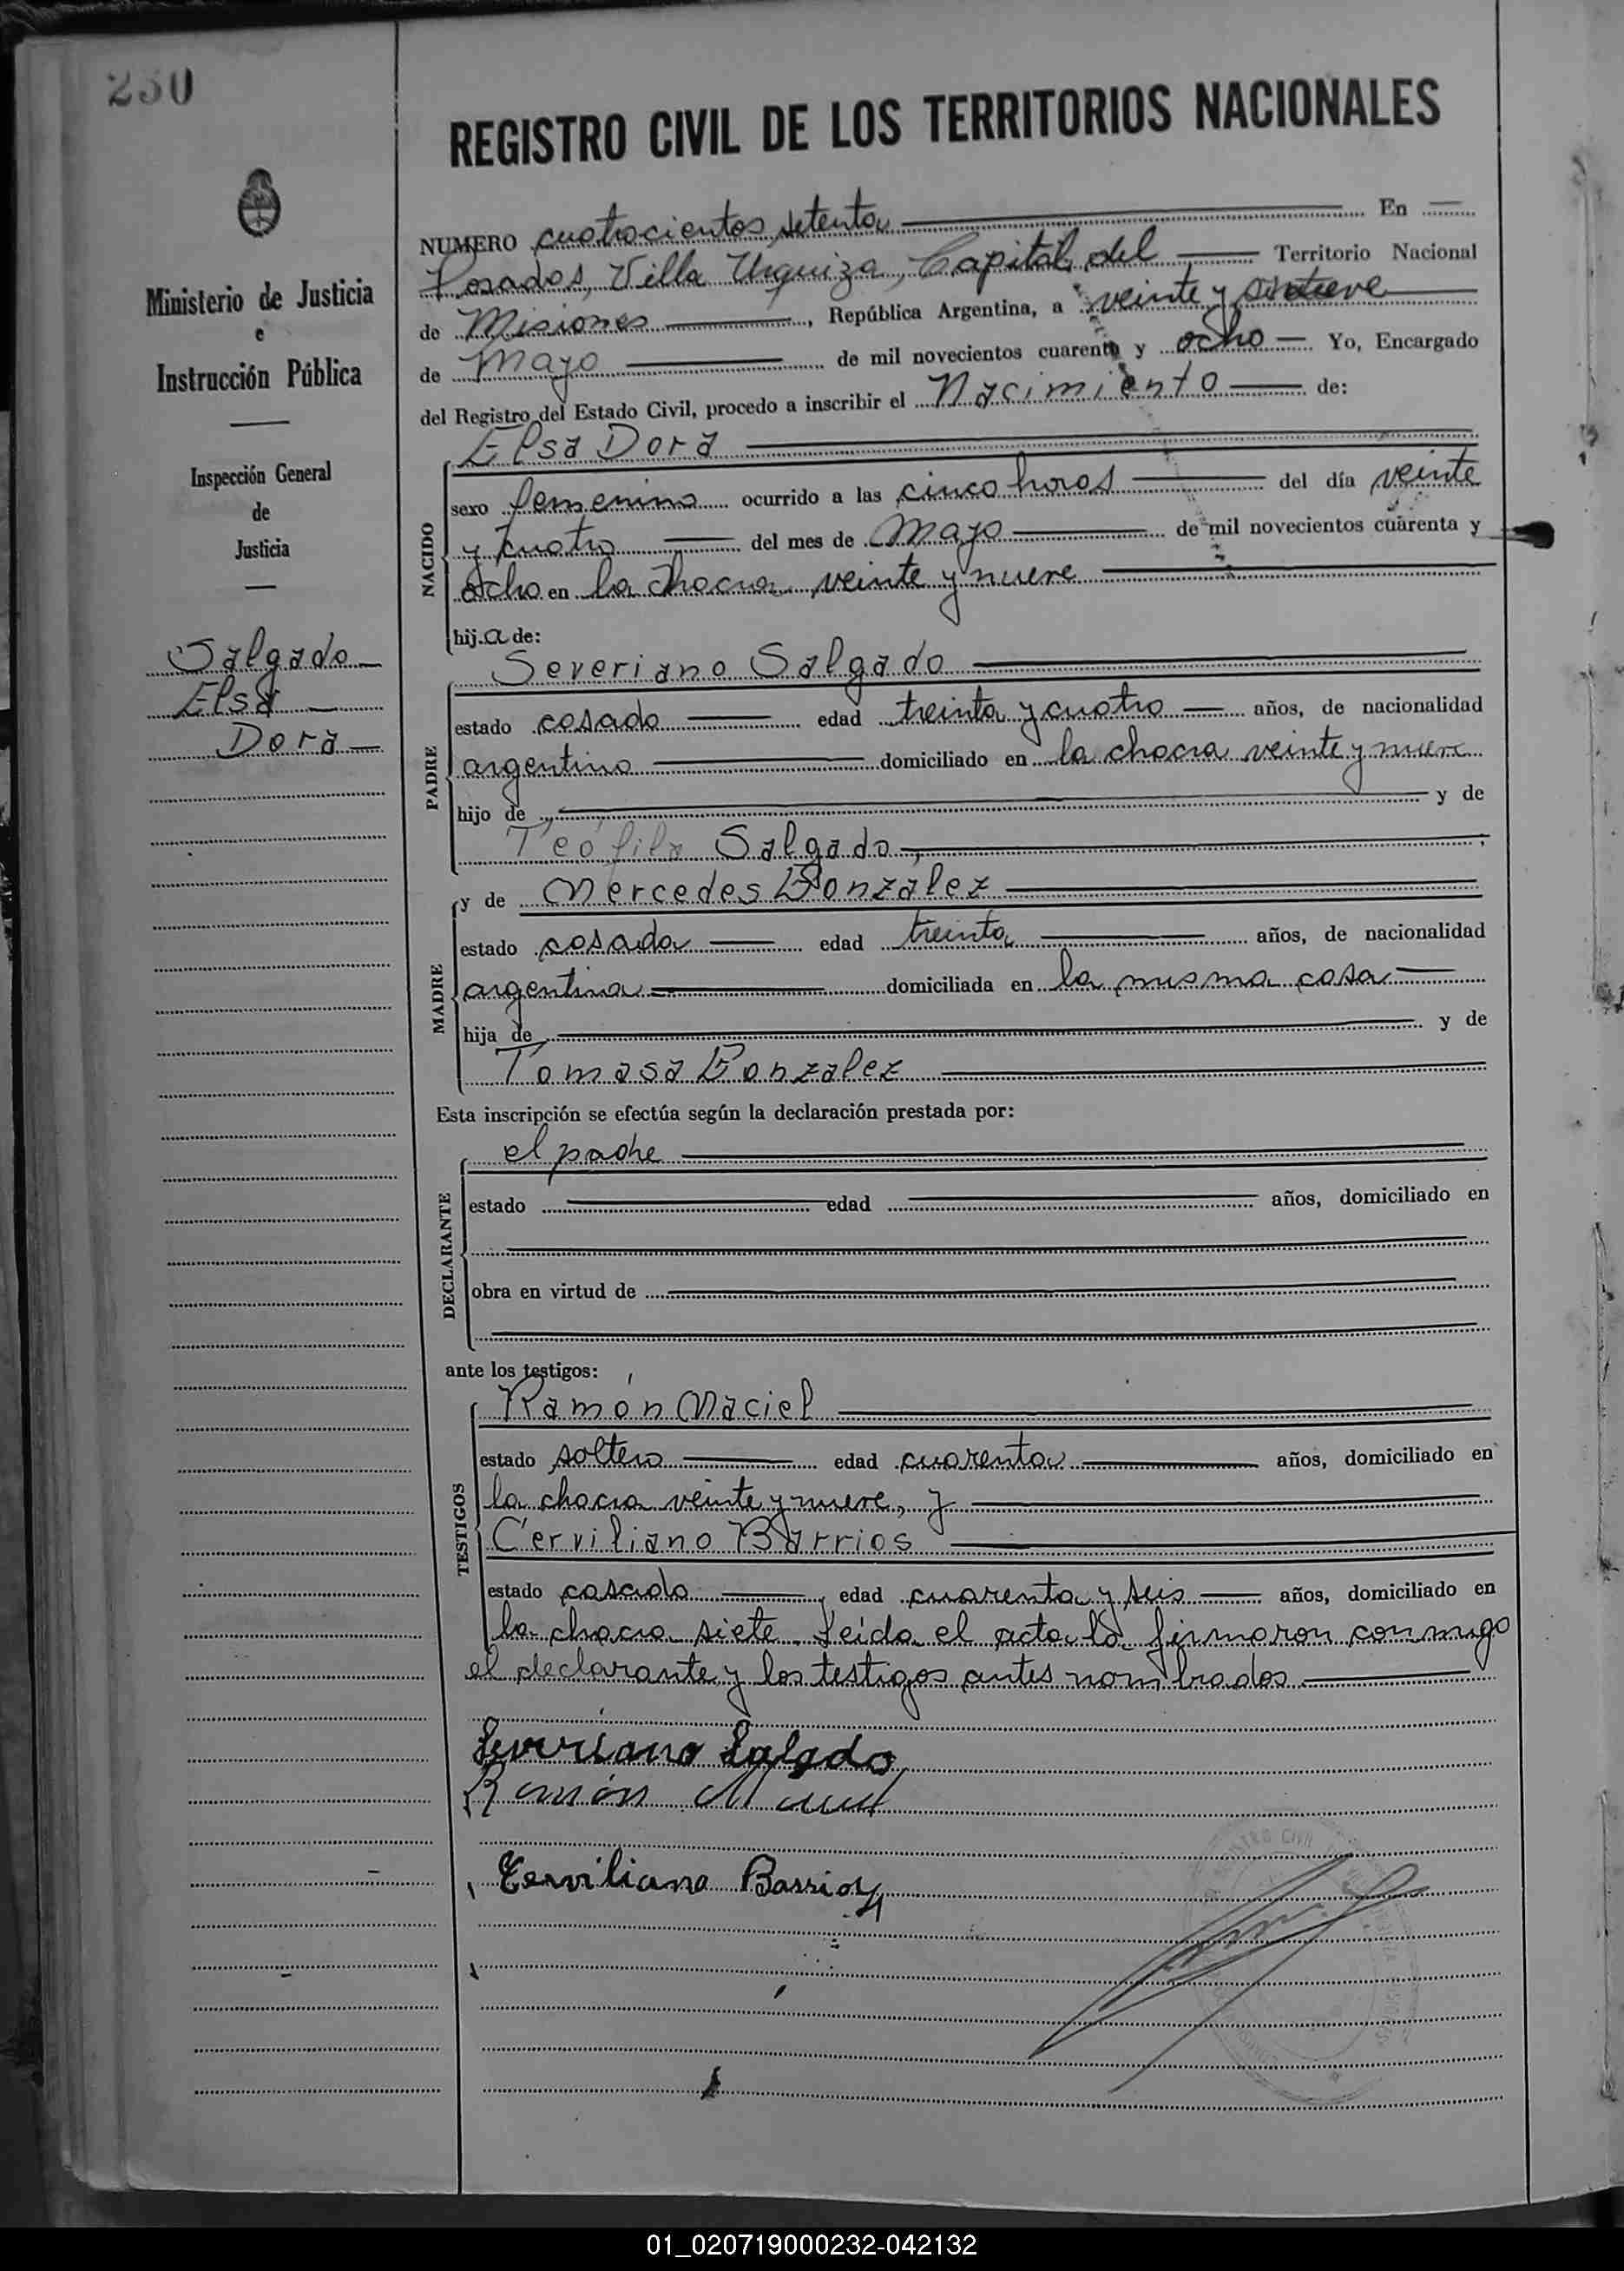 230
REGISTRO CIVIL DE LOS TERRITORIOS NACIONALES
Ministerio de Justicia
e
Instrucción Pública
Inspección General
de
Justicia
Salgado
Elsa
Dora
NUMERO cuatrocientos setenta En
Posadas, Villa Urquiza, Capital del Territorio Nacional
de Misiones, República Argentina, a veinte y
de Mayo de mil novecientos cuarenta y ocho Yo, Encargado
del Registro del Estado Civil, procedo a inscribir el Nacimiento de:
NACIDO
Elsa Dora
sexo femenino ocurrido a las cinco horas del día veinte
y cuatro del mes de Mayo de mil novecientos cuarenta y
ocho en la chacra veinte y nueve
hija de:
PADRE
Severiano Salgado
estado casado edad treinta y cuatro años, de nacionalidad
argentino domiciliado en la chacra veinte y nueve
hijo de y de
Teófila Salgado,
MADRE
y de Mercedes Gonzalez
estado casada edad treinta años, de nacionalidad
argentina domiciliada en la misma casa
hija de y de
Tomasa Gonzalez
Esta inscripción se efectúa según la declaración prestada por:
DECLARANTE
el padre
estado edad años, domiciliado en
obra en virtud de
ante los testigos:
TESTIGOS
Ramón Maciel
estado soltero edad cuarenta años, domiciliado en
la chacra veinte y nueve, y
Cerviliano Barrios
estado casado edad cuarenta y seis años, domiciliado en
la chacra siete. Leída el acta la firmaron conmigo
el declarante y los testigos antes nombrados
Severiano Salgado
Ramón Maciel
Cerviliano Barrios
REGISTRO CIVIL
01_020719000232-042132